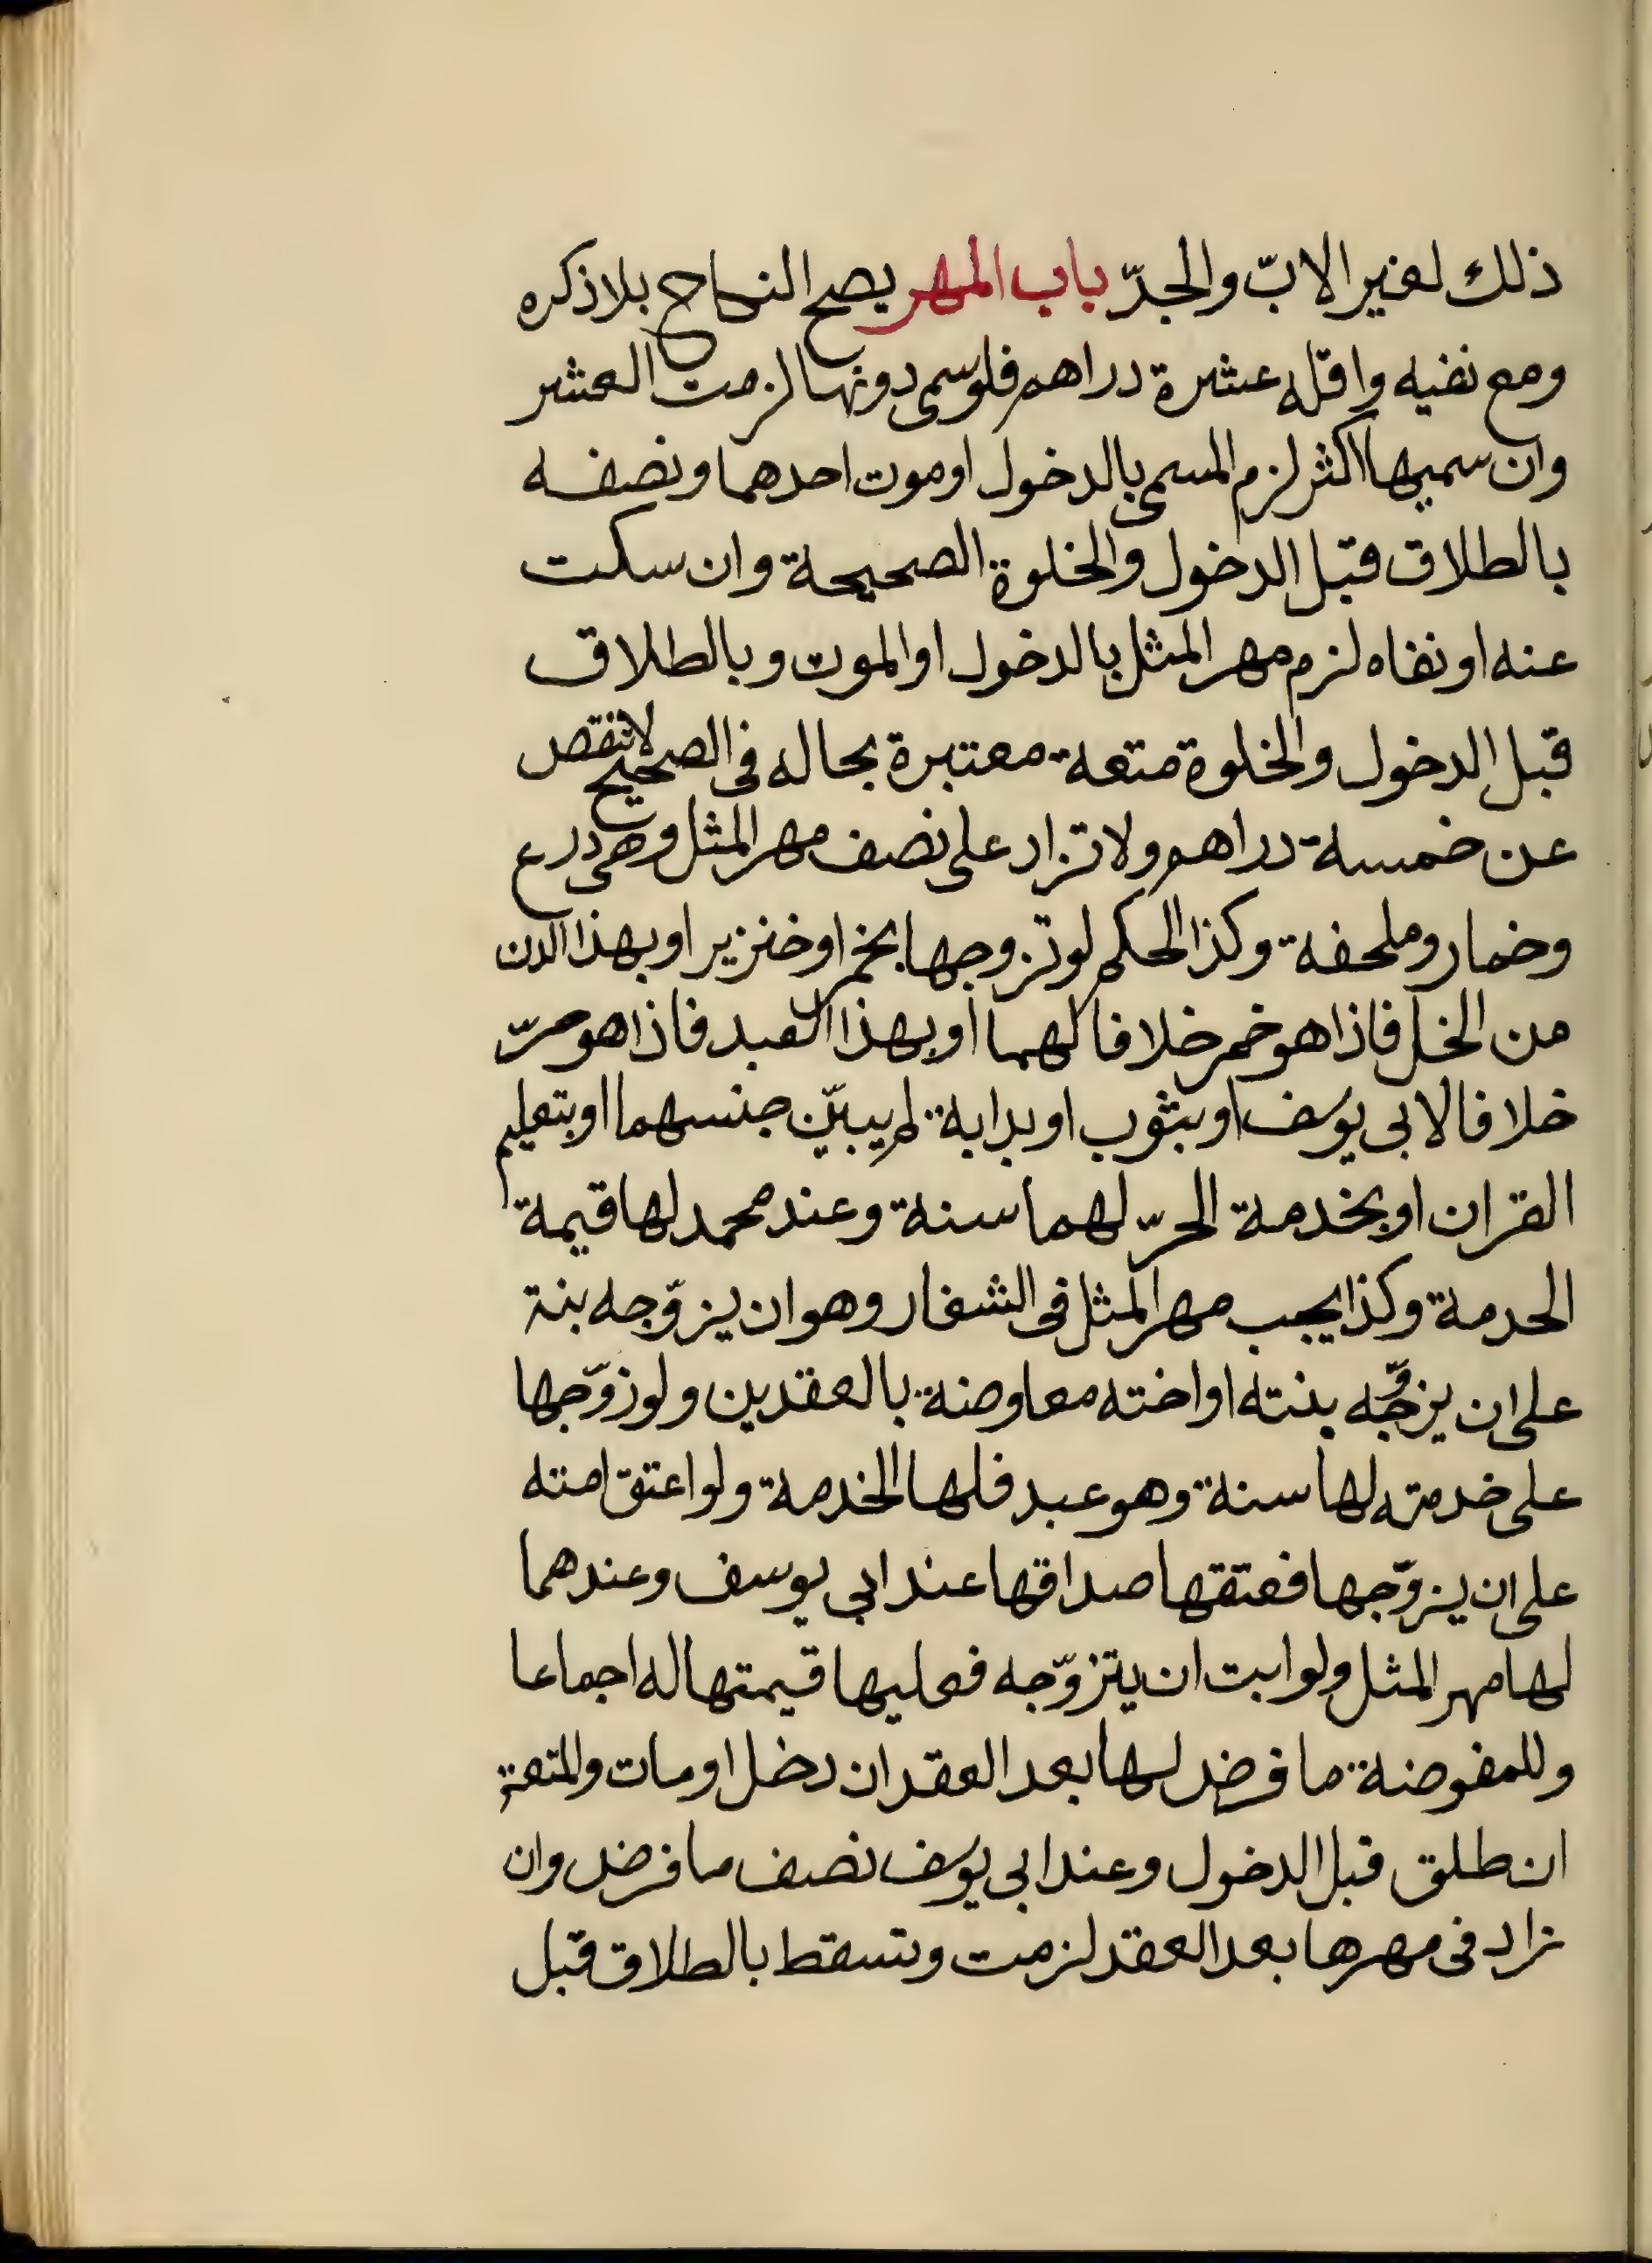 ذلك لغير الابّ والجدّ باب المهر يصح النكاح بلا ذكره
ومع نفيه واقله عشرة دراهم فلو سمى دونها لزمت العشر
وان سميها اكثر لزم المسمى بالدخول او موت احدهما ونصفه
بالطلاق قبل الدخول والخلوة الصحيحة وان سكت
عنه او نفاه لزم مهر المثل بالدخول او الموت وبالطلاق
قبل الدخول والخلوة متعة معتبرة بحاله فى الصحيح لا تنقص
عن خمسة دراهم ولا تزاد على نصف مهر المثل وهى درع
وخمار وملحفة وكذا الحكم لو تزوجها بخمر او خنزير او بهذا الدن
من الخل فاذا هو خمر خلافا لهما او بهذا العبد فاذا هو حرّ
خلافا لابى يوسف او بثوب او بدابة لم يبيّن جنسهما او بتعليم
القران او بخدمة الحرّ لهما سنة وعند محمد لها قيمة
الحدمة وكذا يجب مهر المثل فى الشغار وهو ان يزوّجه بنته
على ان يزوّجه بنته او اخته معاوضة بالعقدين ولو زوّجها
على خدمته لها سنة وهو عبد فلها الخدمة ولو اعتق امته
على ان يزوّجها فعتقها صداقها عند ابى يوسف وعندهما
لها مهر المثل ولو ابت ان يتزوّجه فعليها قيمتها له اجماعا
وللمفوضة ما فرض لها بعد العقد ان دخل او مات والمتعة
ان طلق قبل الدخول وعند ابى يوسف نصف ما فرض وان
زاد فى مهرها بعد العقد لزمت وتسقط بالطلاق قبل